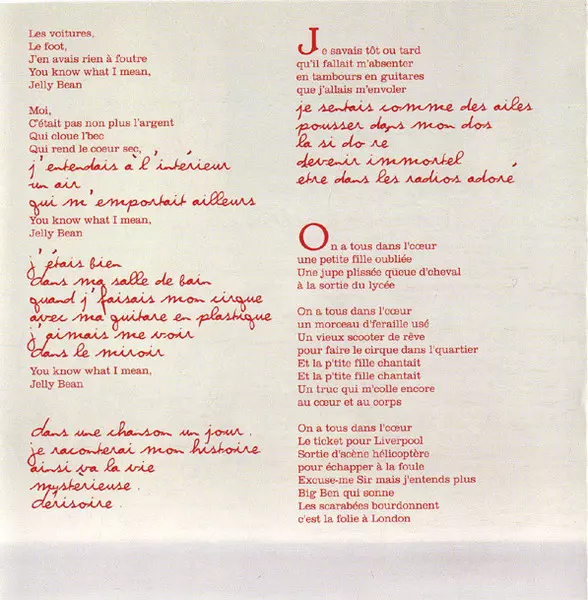 Les voitures,
Le foot,
J'en avais rien à foutre
You know what I mean,
Jelly Bean
Moi,
C'était pas non plus l'argent
Qui cloue l'bec
Qui rend le coeur sec,
j'entendais à l'intérieur
un air
qui m'emportait ailleurs
You know what I mean,
Jelly Bean
j'étais bien
dans ma salle de bain
quand j'faisais mon cirque
avec ma guitare en plastique
j'aimais me voir
dans le miroir
You know what I mean,
Jelly Bean
dans une chanson un jour.
je raconterai mon histoire
ainsi va la vie
mystérieuse.
dérisoire.
Je savais tôt ou tard
qu'il fallait m'absenter
en tambours en guitares
que j'allais m'envoler
je sentais comme des ailes
pousser dans mon dos
la si do re
devenir immortel
etre dans les radios adoré
On a tous dans l'cœur
une petite fille oubliée
Une jupe plissée queue d'cheval
à la sortie du lycée
On a tous dans l'cœur
un morceau d'feraille usé
Un vieux scooter de rêve
pour faire le cirque dans l'quartier
Et la p'tite fille chantait
Et la p'tite fille chantait
Un truc qui m'colle encore
au cœur et au corps
On a tous dans l'cœur
Le ticket pour Liverpool
Sortie d'scène hélicoptère
pour échapper à la foule
Excuse-me Sir mais j'entends plus
Big Ben qui sonne
Les scarabées bourdonnent
c'est la folie à London